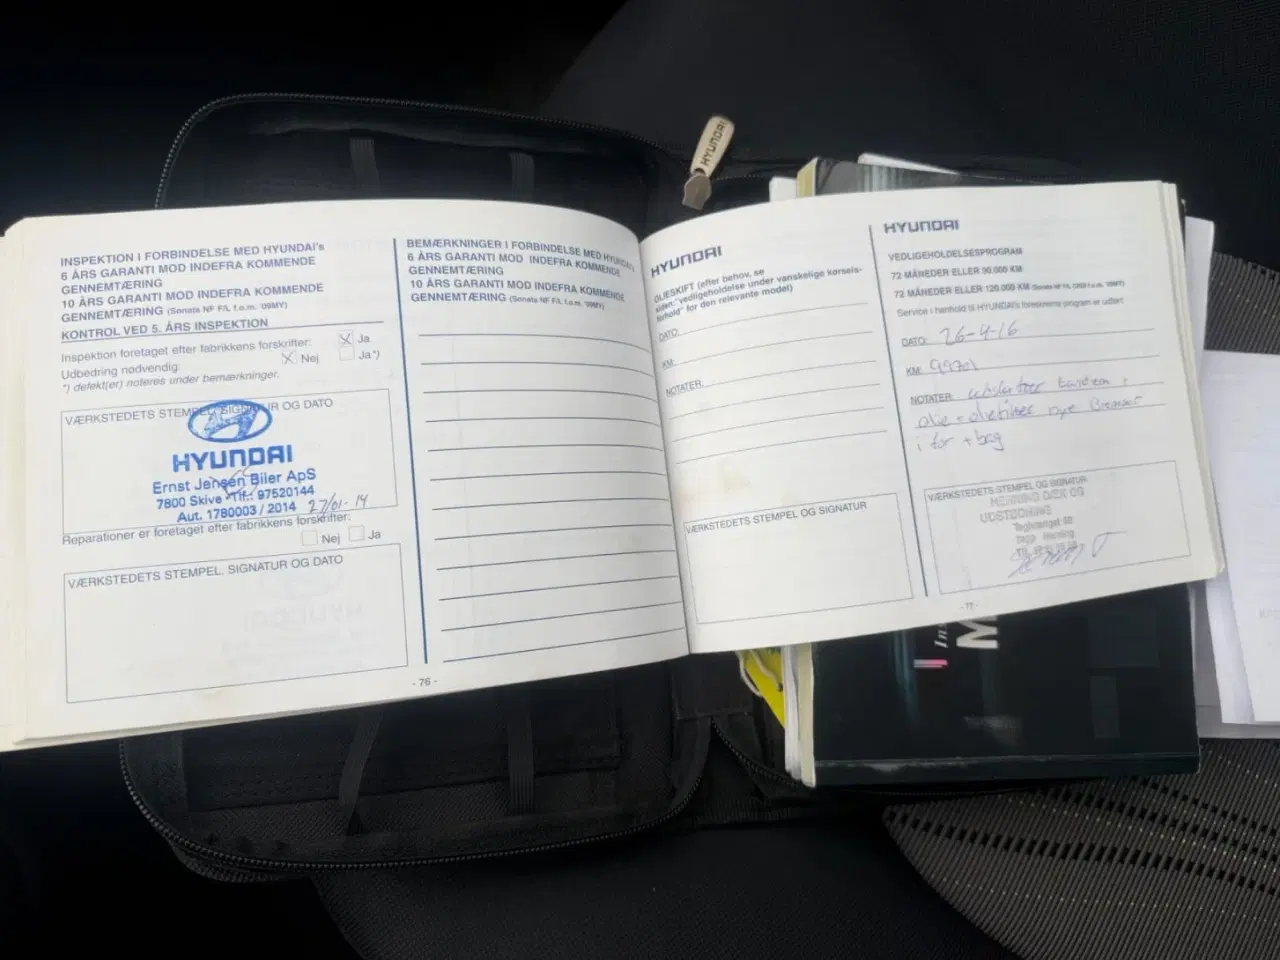 HYUNDAI
INSPEKTION I FORBINDELSE MED HYUNDAI's
6 ÅRS GARANTI MOD INDEFRA KOMMENDE
GENNEMTÆRING
10 ÅRS GARANTI MOD INDEFRA KOMMENDE
GENNEMTÆRING (Sonata NF F/L f.o.m. '09MY)
KONTROL VED 5. ÅRS INSPEKTION
Inspektion foretaget efter fabrikkens forskrifter: X Ja
Udbedring nødvendig: X Nej Ja*)
*) defekt(er) noteres under bemærkninger.
VÆRKSTEDETS STEMPEL, SIGNATUR OG DATO
HYUNDAI
Ernst Jensen Biler ApS
7800 Skive - Tlf.: 97520144
Aut. 1780003 / 2014 27/01-14
Reparationer er foretaget efter fabrikkens forskrifter:
Nej Ja
VÆRKSTEDETS STEMPEL, SIGNATUR OG DATO
BEMÆRKNINGER I FORBINDELSE MED HYUNDAI's
6 ÅRS GARANTI MOD INDEFRA KOMMENDE
GENNEMTÆRING
10 ÅRS GARANTI MOD INDEFRA KOMMENDE
GENNEMTÆRING (Sonata NF F/L f.o.m. '09MY)
- 76 -
HYUNDAI
OLIESKIFT (efter behov, se
siden:"vedligeholdelse under vanskelige kørsels-
forhold" for den relevante model)
DATO:
KM:
NOTATER:
VÆRKSTEDETS STEMPEL OG SIGNATUR
HYUNDAI
VEDLIGEHOLDELSESPROGRAM
72 MÅNEDER ELLER 90.000 KM
72 MÅNEDER ELLER 120.000 KM
Service i henhold til HYUNDAI's foreskrevne program er udført
DATO: 26-4-16
KM: 99701
NOTATER:
olie + oliefilter nye Bremser
i for + bag
VÆRKSTEDETS STEMPEL OG SIGNATUR
HERNING DÆK OG
UDSTØDNING
Herning
- 77 -